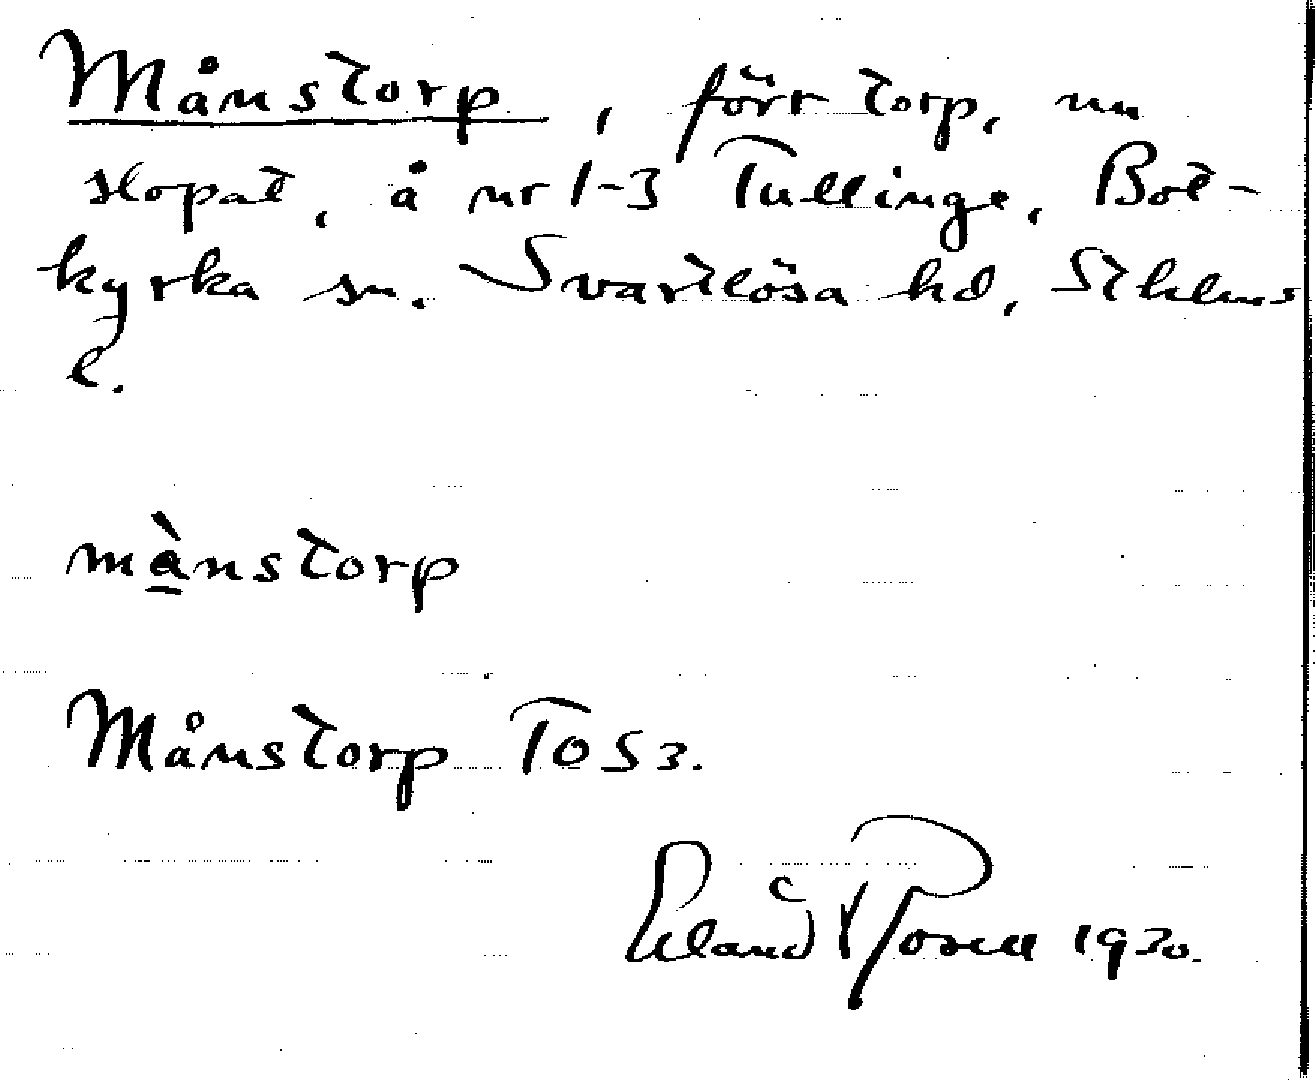 Månstorp, förr torp, nu
slopat, å nr 1-3 Tullinge, Bot-
kyrka sn. Svartlösa hd, Sthlms
l.
månstorp
Månstorp TOS3.
Erland Rosell 1930.